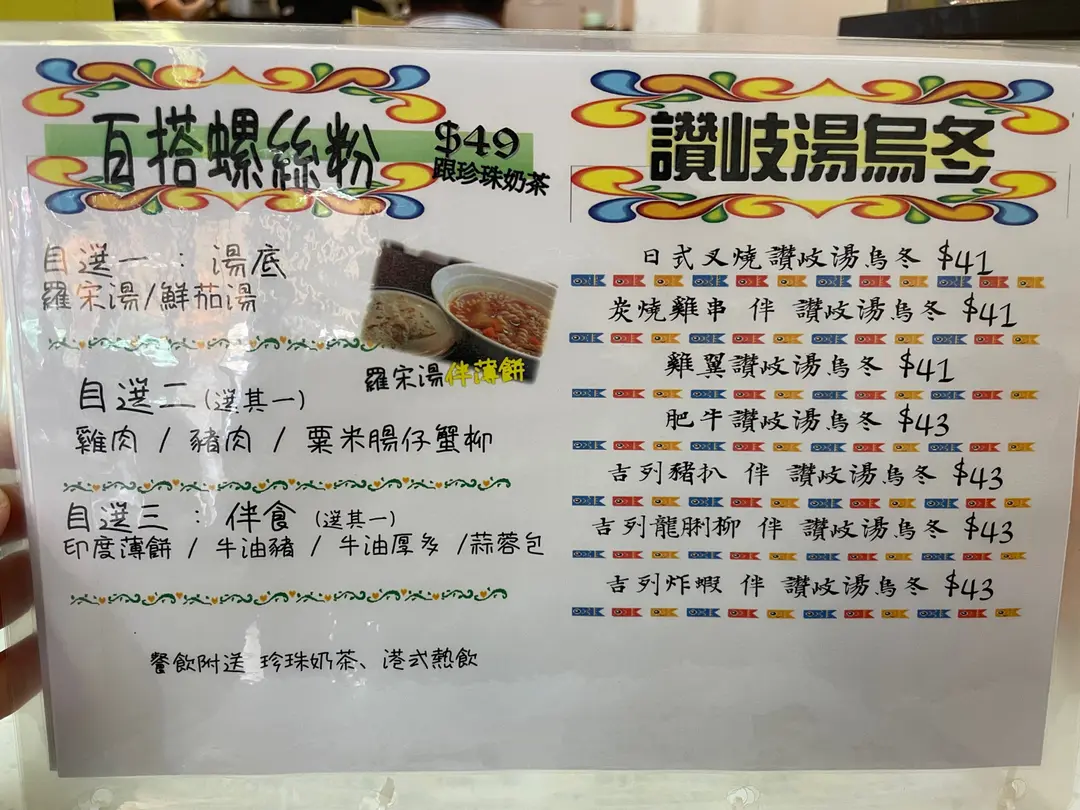 百搭螺絲粉
$49
跟珍珠奶茶
自選一 : 湯底
羅宋湯/鮮茄湯
羅宋湯伴薄餅
自選二(選其一)
雞肉 / 豬肉 / 粟米腸仔蟹柳
自選三 : 伴食 (選其一)
印度薄餅 / 牛油豬 / 牛油厚多 /蒜蓉包
餐飲附送 珍珠奶茶、港式熱飲
讚岐湯烏冬
日式叉燒讚岐湯烏冬 $41
炭燒雞串 伴 讚岐湯烏冬 $41
雞翼讚岐湯烏冬 $41
肥牛讚岐湯烏冬 $43
吉列豬扒 伴 讚岐湯烏冬 $43
吉列龍脷柳 伴 讚岐湯烏冬 $43
吉列炸蝦 伴 讚岐湯烏冬 $43